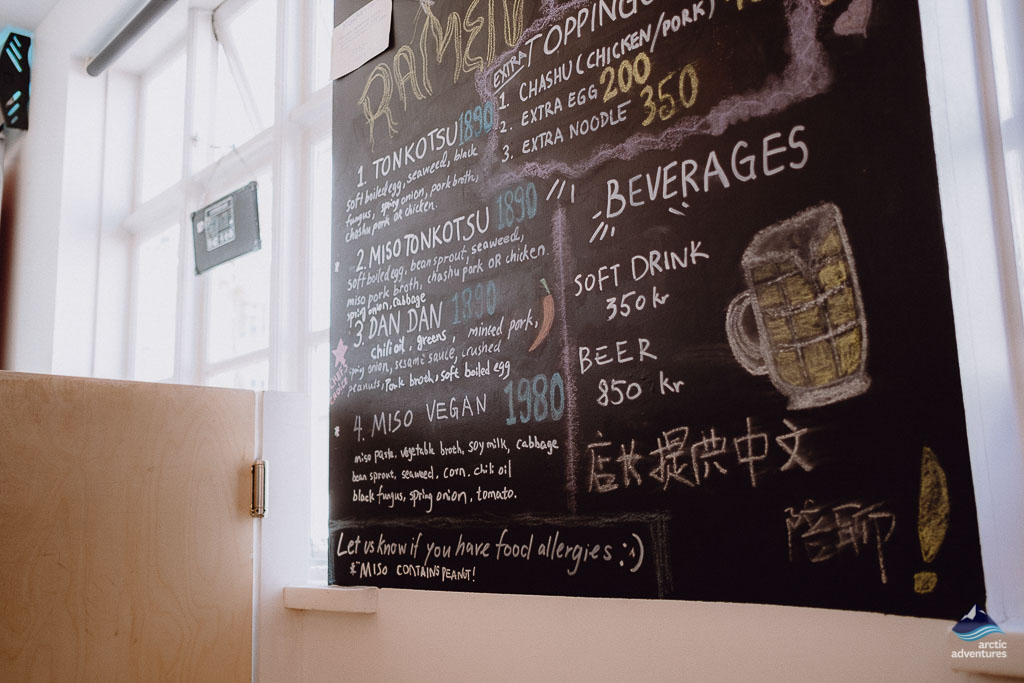 RAMEN
1. TONKOTSU 1890
soft boiled egg, seaweed, black
fungus, spring onion, pork broth,
chashu pork OR chicken.
2. MISO TONKOTSU 1890
soft boiled egg, bean sprout, seaweed,
miso pork broth, chashu pork OR chicken.
spring onion, cabbage
3. DAN DAN 1890
chili oil, greens, minced pork,
spring onion, sesame sauce, crushed
peanuts, pork broth, soft boiled egg
4. MISO VEGAN 1980
miso paste, vegetable broth, soy milk, cabbage
bean sprout, seaweed, corn. chili oil
black fungus, spring onion, tomato.
Let us know if you have food allergies :)
*MISO CONTAINS PEANUT!
EXTRA TOPPING
1. CHASHU (CHICKEN/PORK)
2. EXTRA EGG 200
3. EXTRA NOODLE 350
BEVERAGES
SOFT DRINK
350 kr
BEER
850 kr
店长提供中文
陪聊!
arctic
adventures